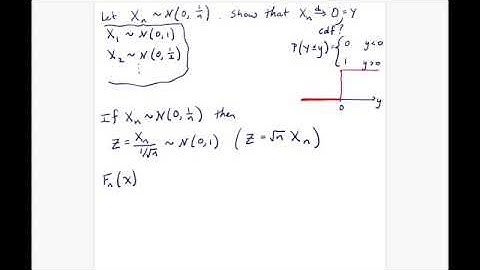 Let Xₙ ~ N(0, 1/n). Show that Xₙ →ᵈ 0 = Y
X₁ ~ N(0,1)
X₂ ~ N(0, 1/2)
⋮
cdf?
P(Y≤y) = { 0 y<0
1 y>0
0 y
If Xₙ ~ N(0, 1/n) then
Z = Xₙ / 1/√n ~ N(0,1) (Z = √n Xₙ)
Fₙ(x)